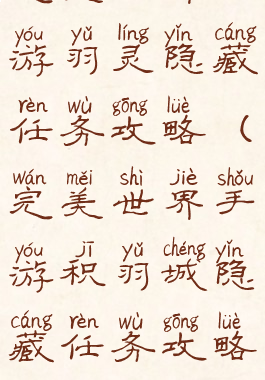 yóu yǔ líng yǐn cáng
游羽灵隐藏
rèn wù gōng lüè
任务攻略（
wán měi shì jiè shǒu
完美世界手
yóu jī yǔ chéng yǐn
游积羽城隐
cáng rèn wù gōng lüè
藏任务攻略